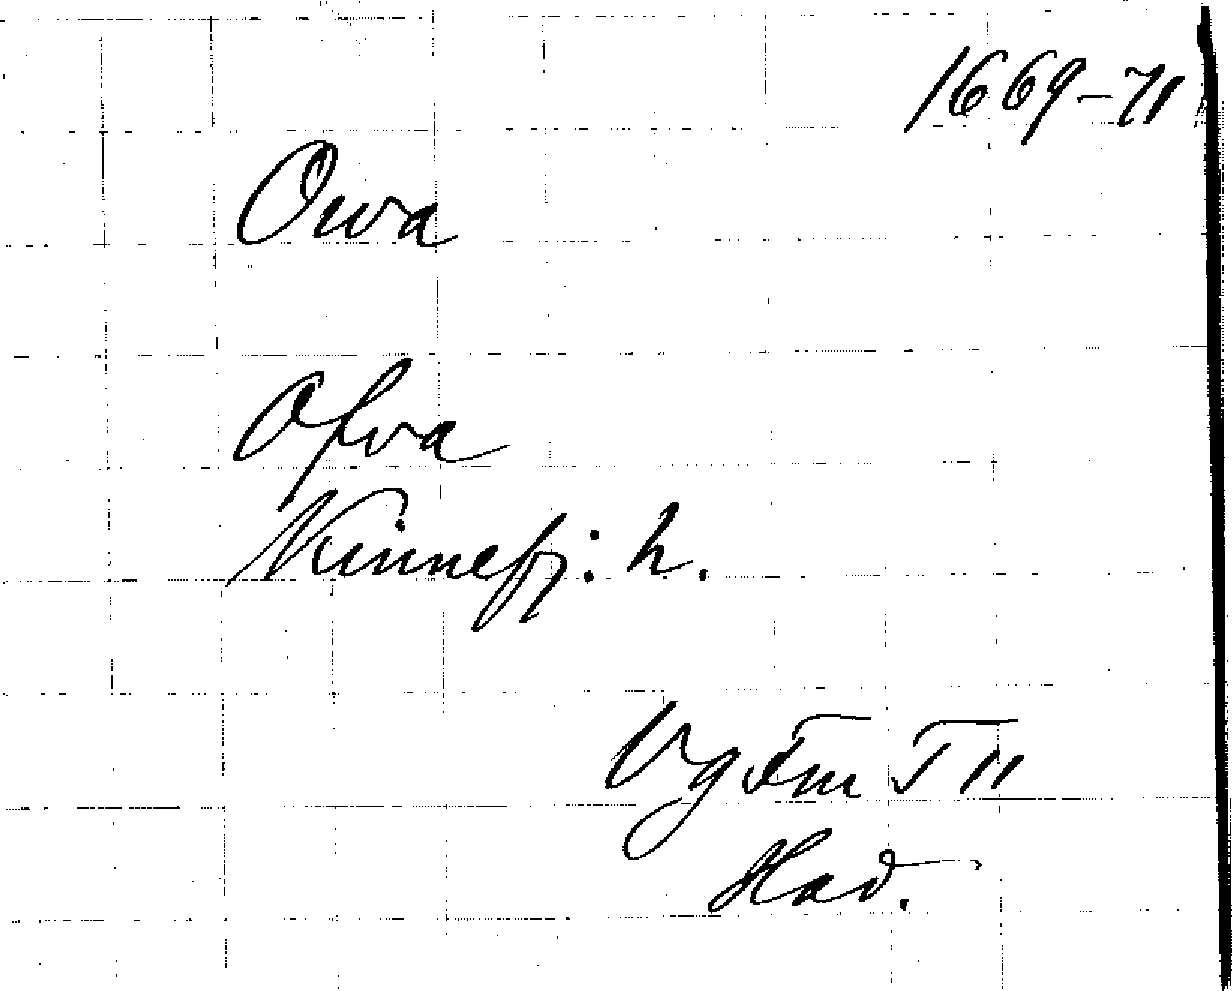 1669-71
Owa
Ofva
Kinnefj: h.
Vg Fm T 11
Had.